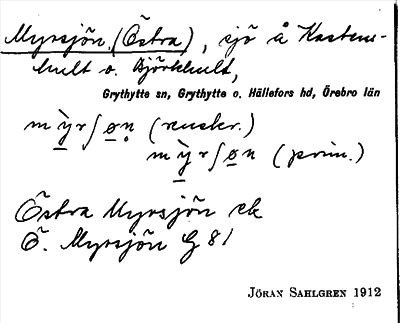 Myrsjön (Östra), sjö å Kastens-
hult o. Björkhult,
Grythytte sn, Grythytte o. Hällefors hd, Örebro län
mỳrʃøn (renskr.)
mỳrʃøn (prim.)
Östra Myrsjön ek
Ö. Myrsjön G 81
JÖRAN SAHLGREN 1912